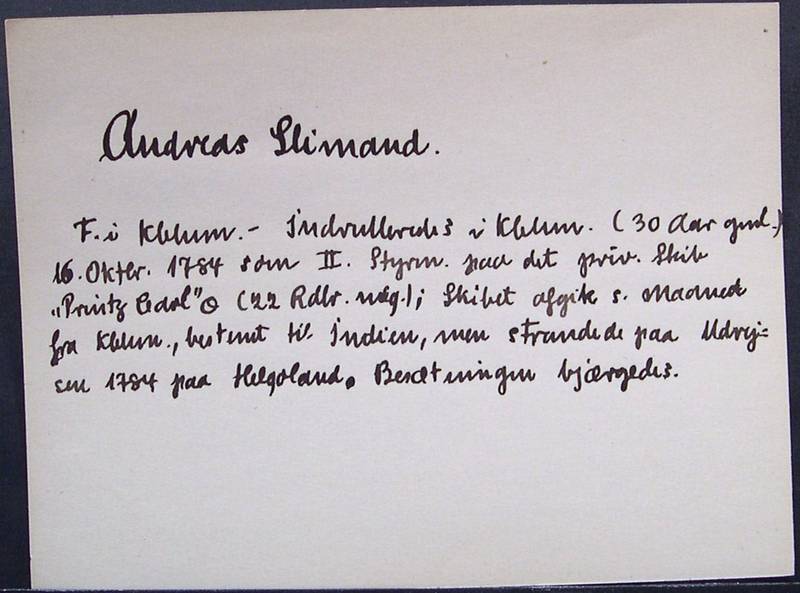 Andreas Slimand.
F. i Kbhvn. - Indrulleredes i Kbhvn. (30 Aar gml.)
16. Oktbr. 1784 som II. Styrm. paa det priv. Skib
"Printz Carl" (22 Rdlr. mdg.); Skibet afgik s. Maaned
fra Kbhvn., bestemt til Indien, men strandede paa Udrej=
sen 1784 paa Helgoland. Besætningen bjærgedes.